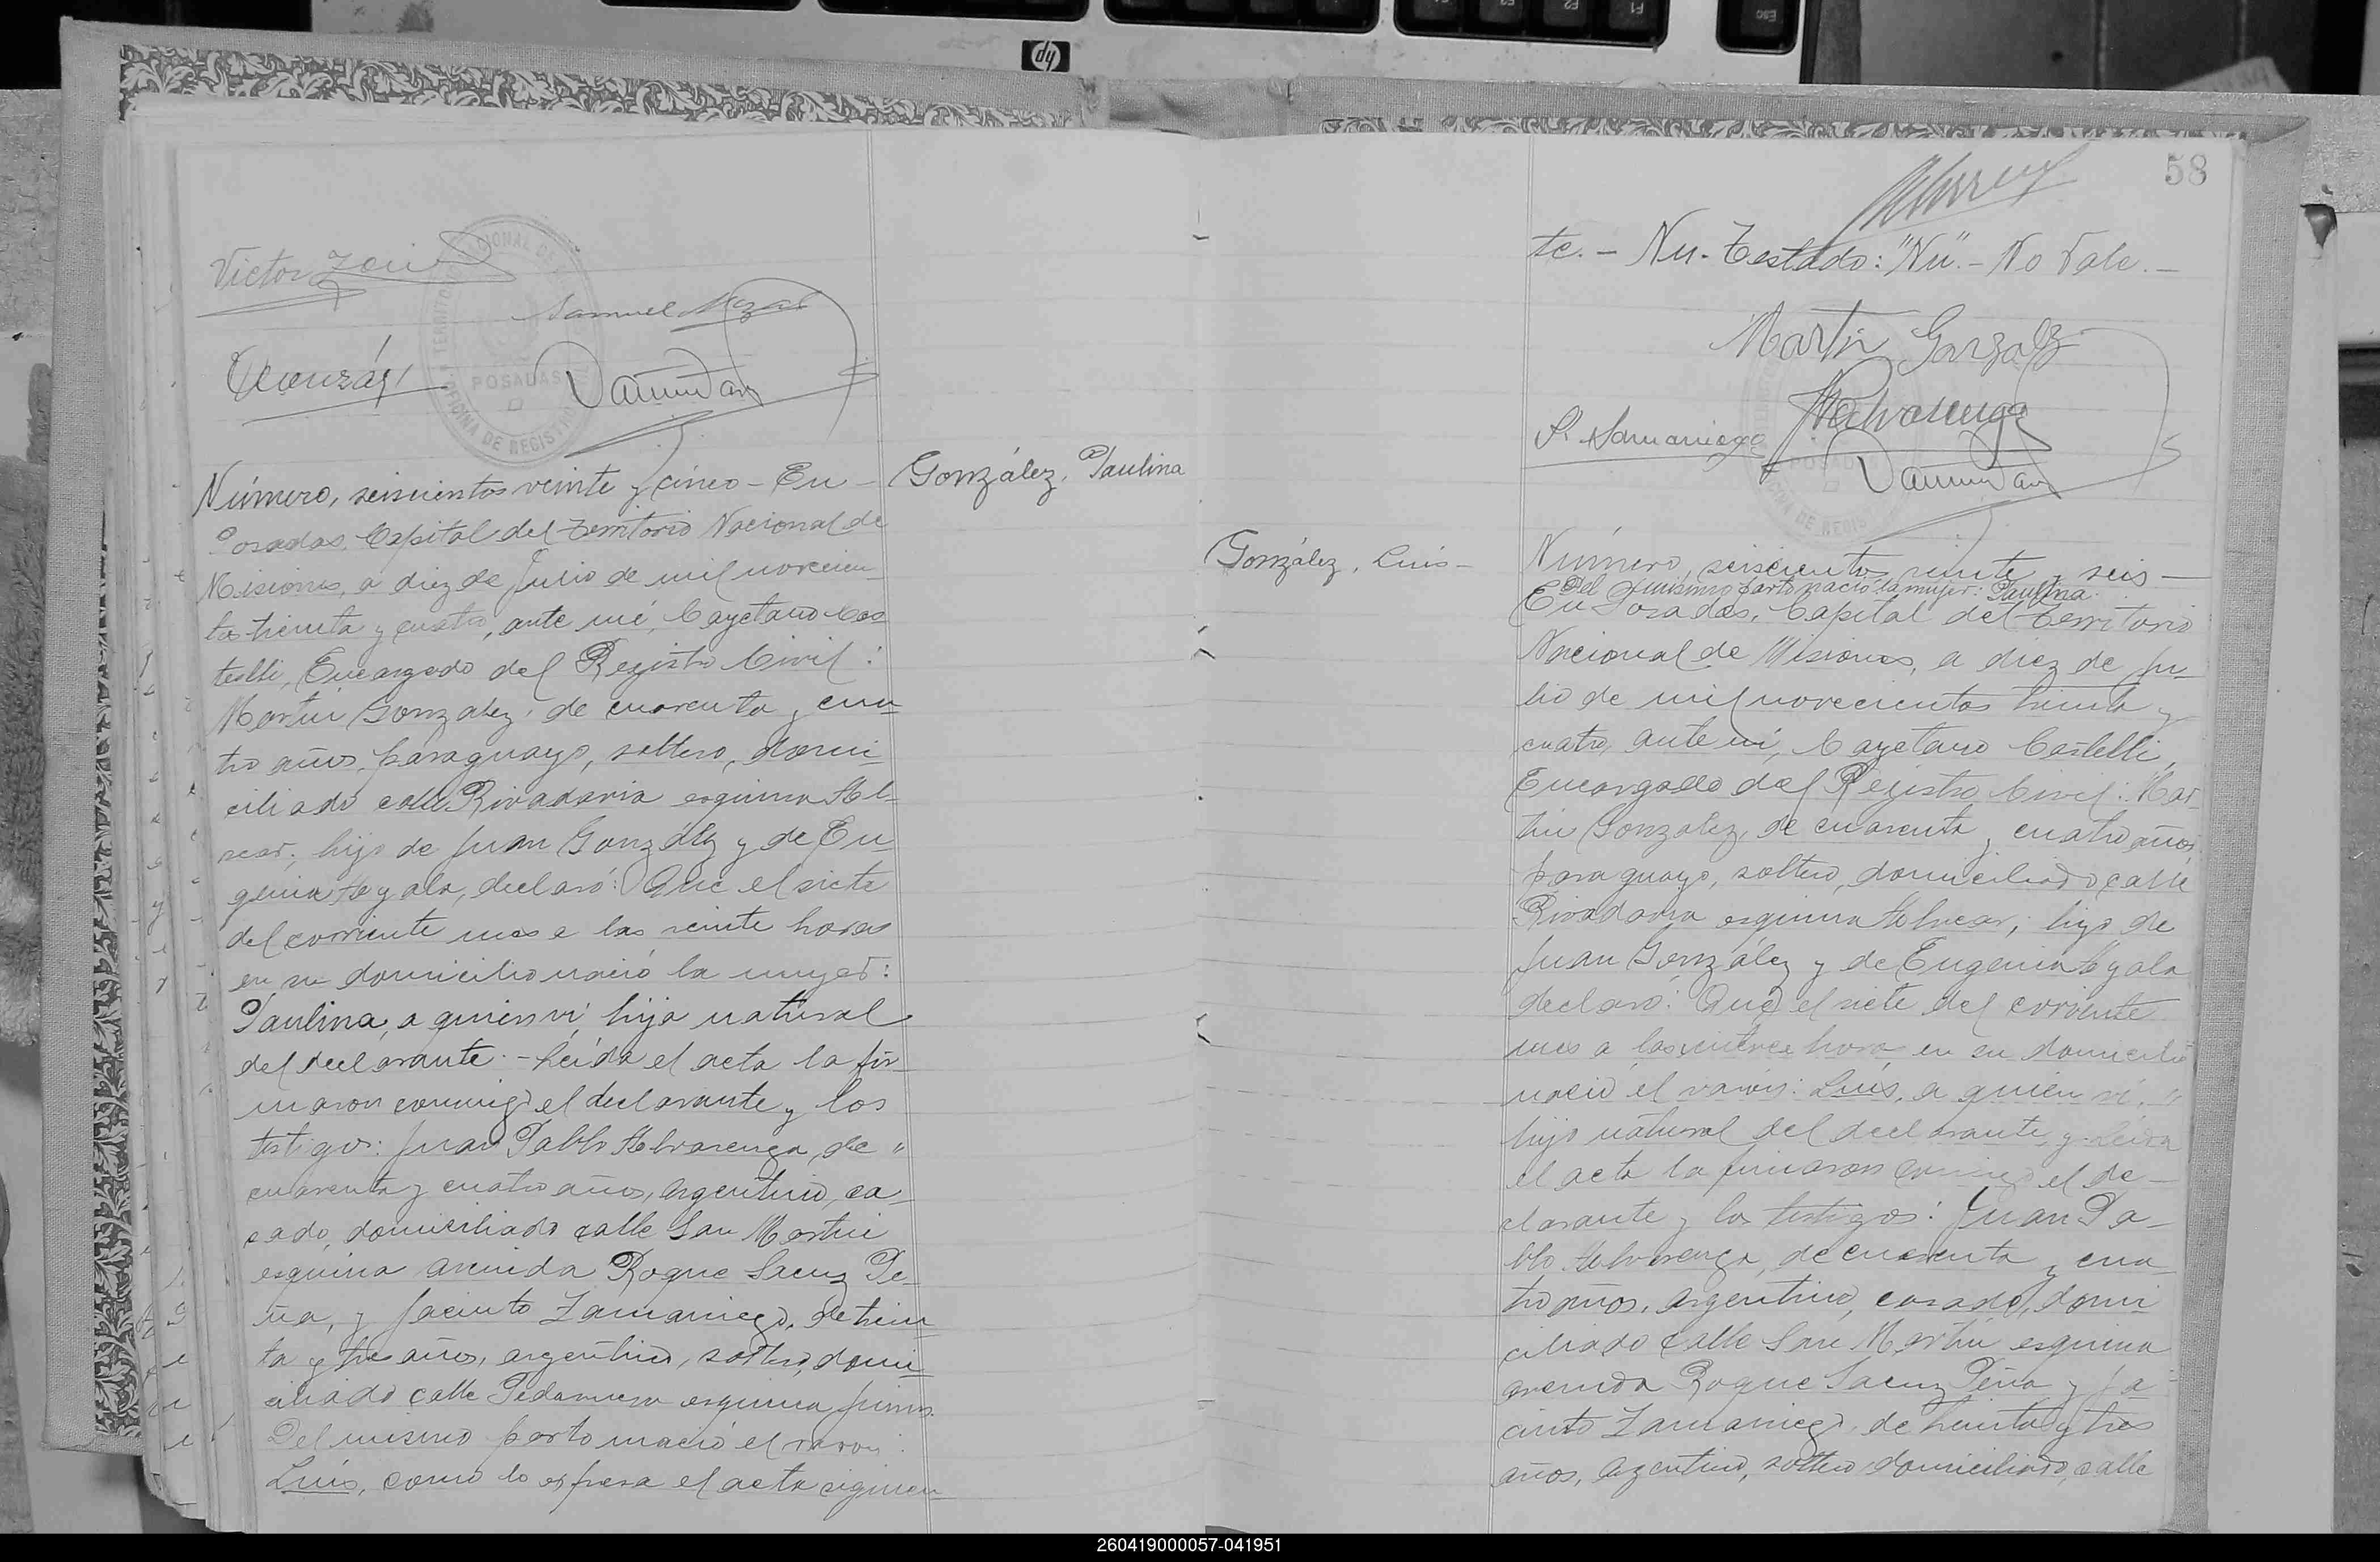 Esc
F1
F2
hp
Victor
Samuel
POSADAS
OFICINA DE REGISTRO
Número, seiscientos veinte y cinco - En -
González, Paulina
Posadas, Capital del Territorio Nacional de
Misiones, a diez de Julio de mil novecien-
tos treinta y cuatro, ante mí, Cayetano Cas
telli, Encargado del Registro Civil:
Martín González, de cuarenta y cua-
tro años, paraguayo, soltero, domi
ciliado calle Rivadavia esquina Al-
vear; hijo de Juan González y de Eu
genia Ayala, declaró: Que el siete
del corriente mes a las veinte horas
en su domicilio nació la mujer:
Paulina, a quien vi, hija natural
del declarante.- Leída el acta la fir-
maron conmigo el declarante y los
testigos: Juan Pablo Alvarenga, de "
cuarenta y cuatro años, argentino, ca-
sado, domiciliado calle San Martín
esquina avenida Roque Saenz Pe-
ña, y Jacinto Zamaniego, de trein-
ta y tres años, argentino, soltero, domi-
ciliado calle esquina
Del mismo parto nació el varon:
Luis, como lo expresa el acta siguien-
58
te.- Nu- Testado: "Nu".- No Vale.-
Martin Gonzalez
Alvarenga
S. Samaniego
González, Luis-
Número, seiscientos veinte y seis -
Del mismo parto nació la mujer: Paulina.
En Posadas, Capital del Territorio
Nacional de Misiones, a diez de Ju-
lio de mil novecientos treinta y
cuatro, ante mí, Cayetano Castelli,
Encargado del Registro Civil: Mar-
tin González, de cuarenta y cuatro años,
paraguayo, soltero, domiciliado calle
Rivadavia esquina Alvear; hijo de
Juan González y de Eugenia Ayala
declaró: Que el siete del corriente
mes a las hora en su domicilio
nació el varón: Luis, a quien vi, "
hijo natural del declarante y Leida
el acta la firmaron conmigo el de-
clarante y los testigos: Juan Pa-
blo Alvarenga, de cuarenta y cua-
tro años, argentino, casado, domi
ciliado calle San Martin esquina
avenida Roque Saenz Peña y Ja
cinto Zamaniego, de treinta y tres
años, argentino, soltero, domiciliado, calle
260419000057-041951